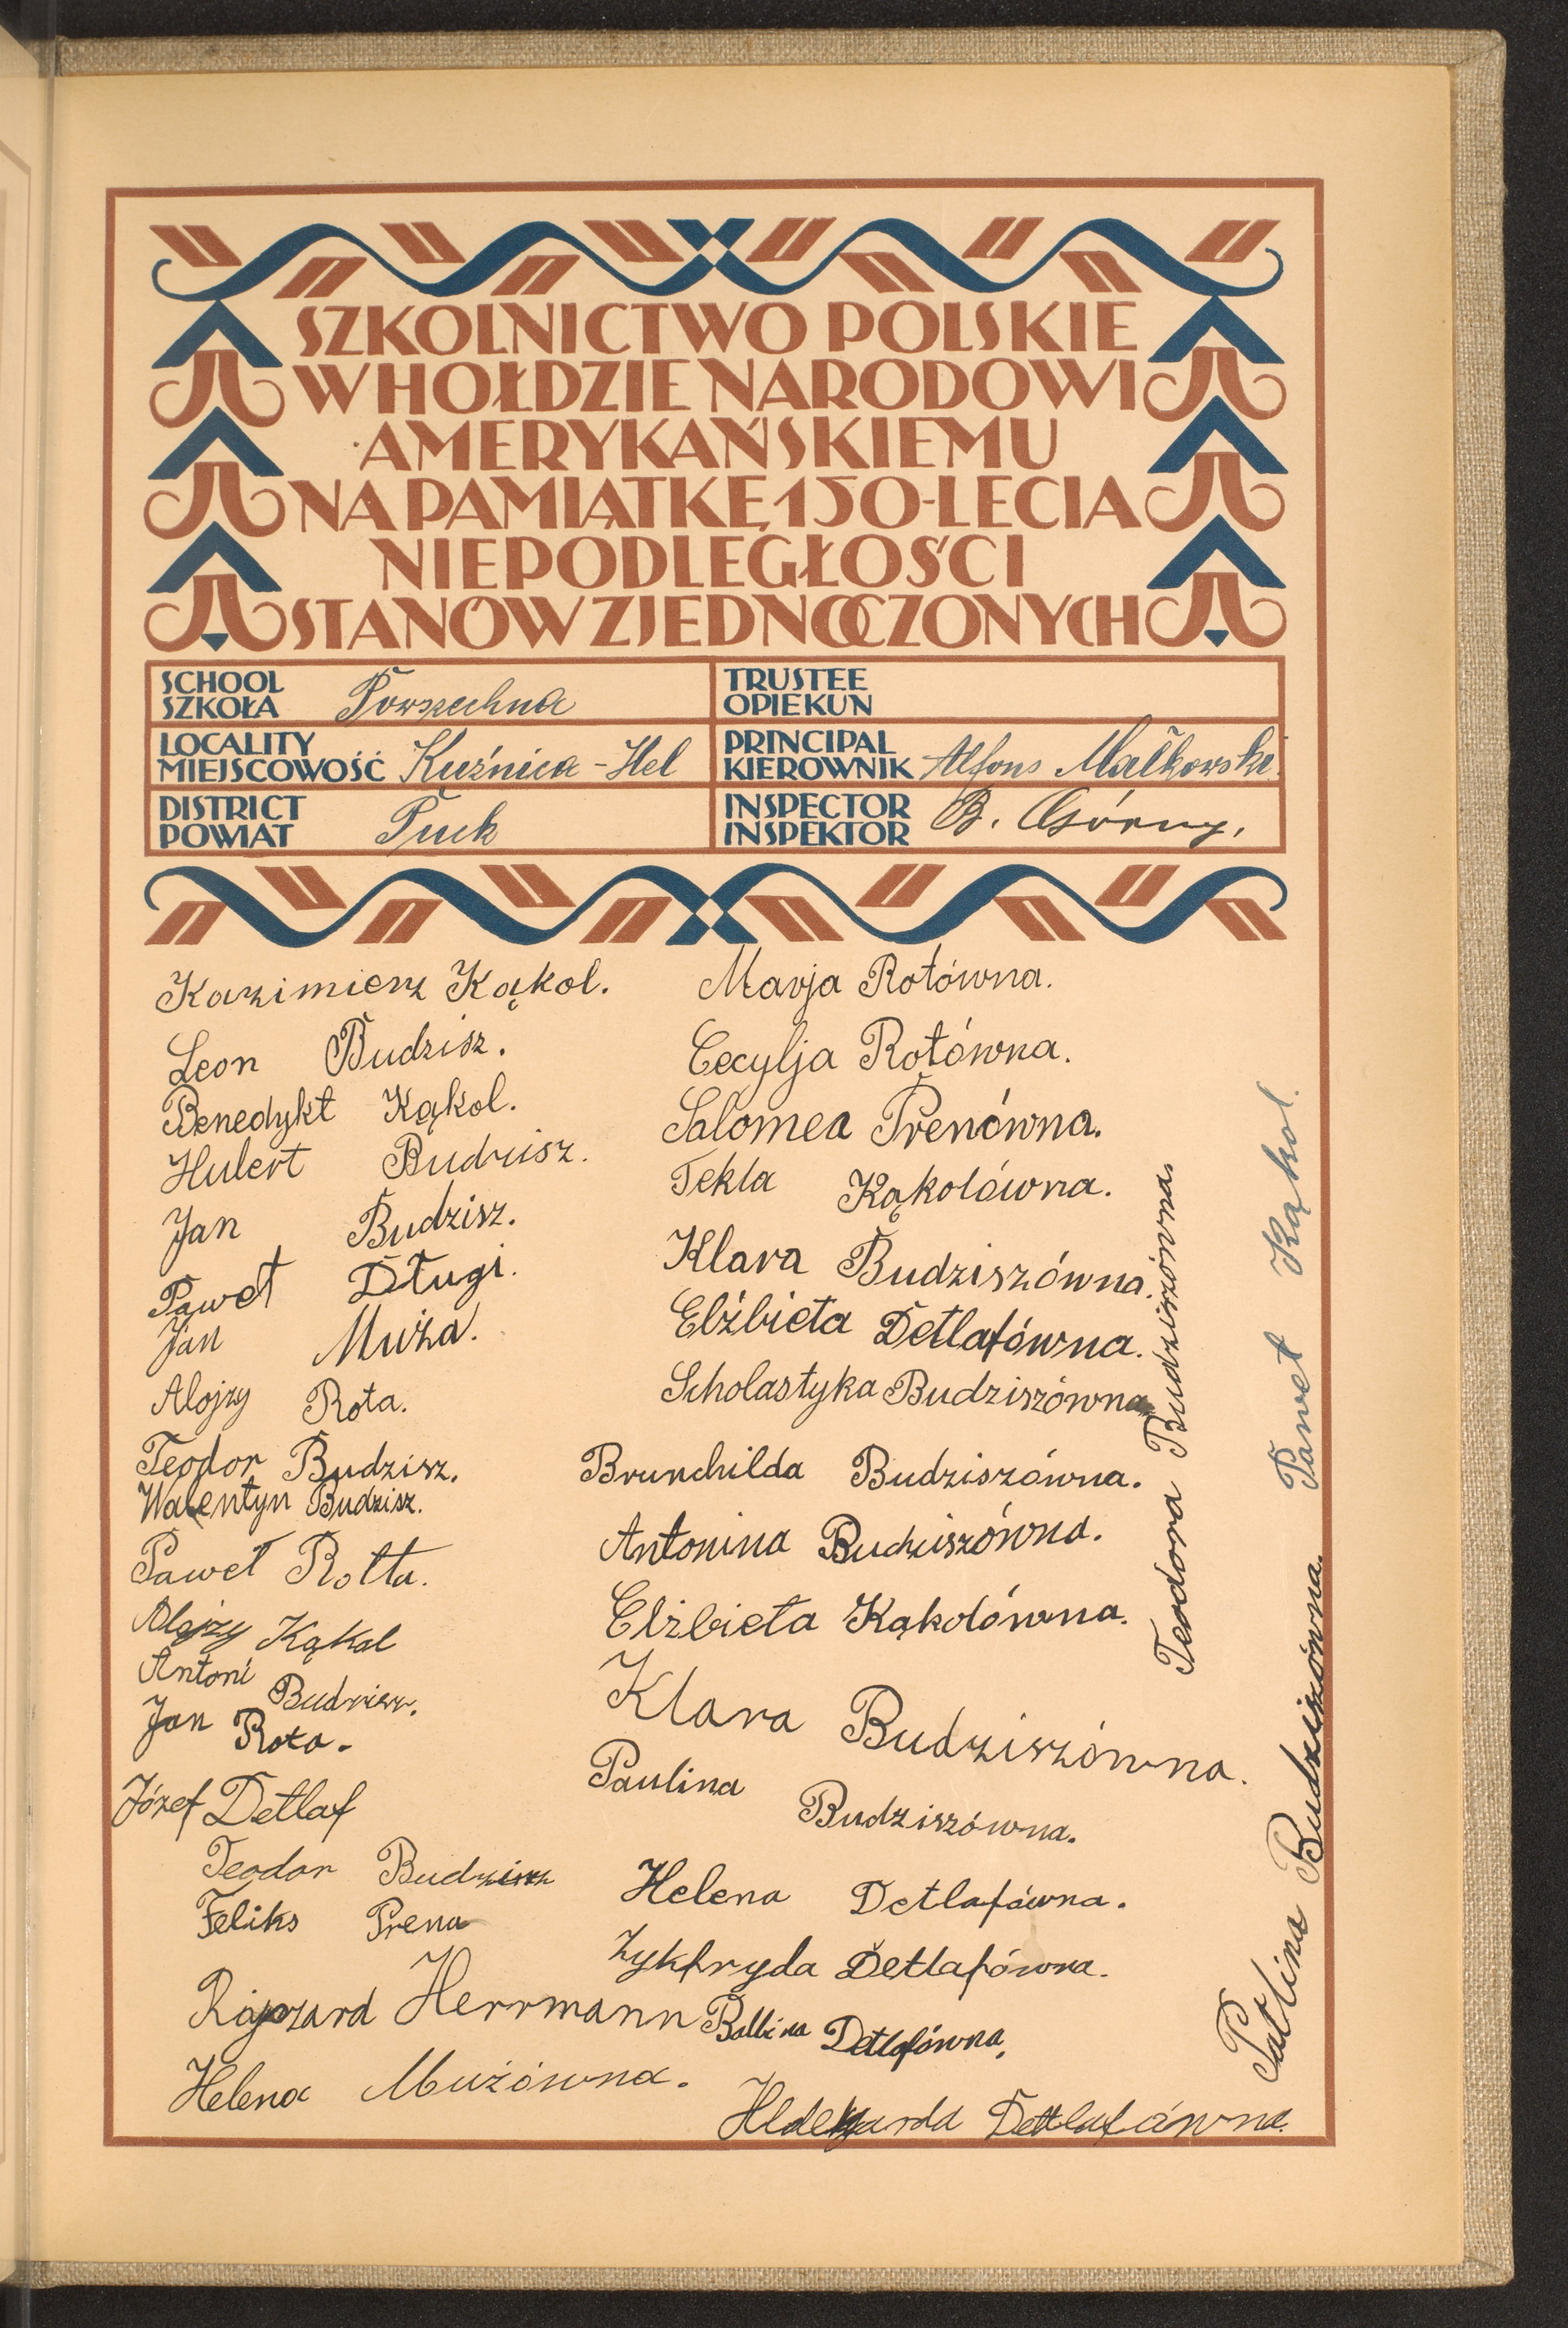 SZKOLNICTWO POLSKIE
W HOŁDZIE NARODOWI
AMERYKAŃSKIEMU
NA PAMIĄTKĘ 150-LECIA
NIEPODLEGŁOŚCI
STANÓW ZJEDNOCZONYCH
SCHOOL
SZKOŁA Powszechna
TRUSTEE
OPIEKUN
LOCALITY
MIEJSCOWOŚĆ Kuźnica - Hel
PRINCIPAL
KIEROWNIK Alfons Małkowski
DISTRICT
POWIAT Puck
INSPECTOR
INSPEKTOR B. Górny.
Kazimierz Kąkol.
Leon Budzisz.
Benedykt Kąkol.
Hubert Budzisz.
Jan Budzisz.
Paweł Długi.
Jan Muża.
Alojzy Rota.
Teodor Budzisz.
Walentyn Budzisz.
Paweł Rotta.
Alojzy Kąkol
Antoni Budzisz.
Jan Rota.
Józef Detlaf
Teodor Budzisz
Feliks Prena
Ryszard Herrmann
Helena Mużówna.
Marja Rotówna.
Cecylja Rotówna.
Salomea Prenówna.
Tekla Kąkolówna.
Klara Budziszówna.
Elżbieta Detlafówna.
Scholastyka Budziszówna
Brunchilda Budziszówna.
Antonina Budziszówna.
Elżbieta Kąkolówna.
Klara Budziszówna.
Paulina Budziszówna.
Helena Detlafówna.
Zykfryda Detlafówna.
Balbina Detlafówna.
Detlafówna.
Teodora Budziszówna.
Paweł Kąkol.
Budziszówna.